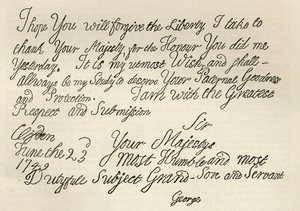 I hope You will forgive the Liberty I take to
thank Your Majesty for the Honour You did me
Yesterday. It is my utmost Wish, and shall
allways be my Study to deserve Your Paternal Goodness
and Protection. I am with the Greatest
Respect and Submission
Sir
Your Majestys
June the 23d
1749
most Humble and most
Dutyfull Subject Grand-Son and Servant
George